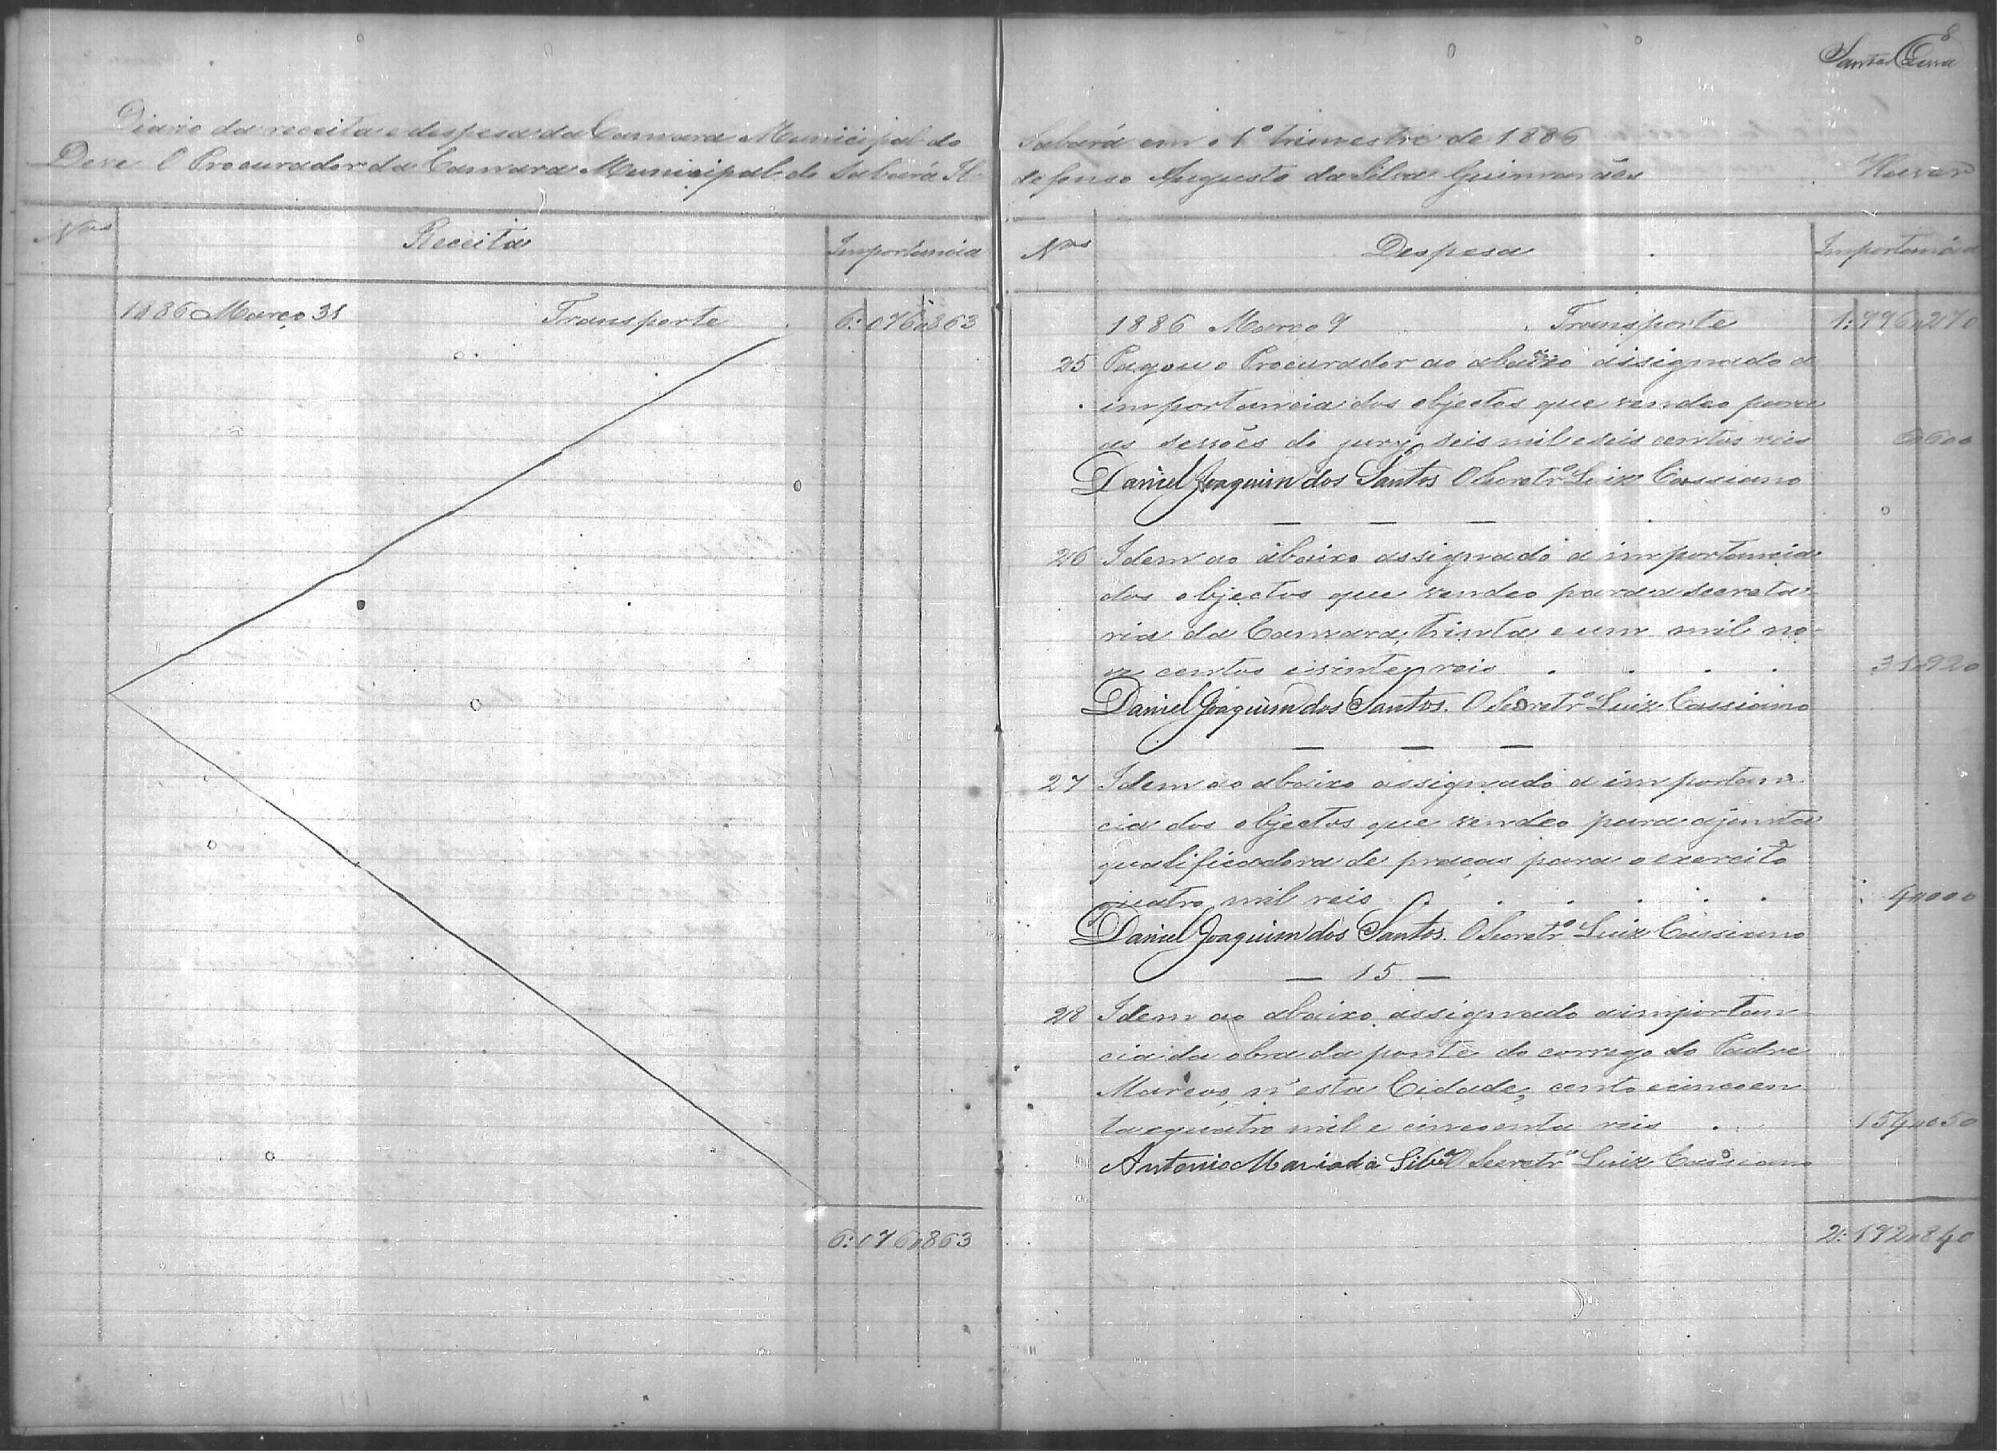 Diario da receita e despesa da Camara Municipal do
Deve O Procurador da Camara Municipal do Sabará Il-
Nos Receita Importancia
1886 Março 31 Transporte 6:076"863
6:076"863
8
Sabará em o 1º trimestre de 1886
defonso Augusto da Silva Guimarães Haver
Nos Despesa Importancia
1886 Março 9 Transporte 1:996"270
25 Pagou o Procurador ao abaixo assignado a
importancia dos objectos que vendeo para
as sessões do jury, seis mil e seis centos reis 6"600
Daniel Joaquim dos Santos O Secretrº Luiz Cassiano
— — —
26 Idem ao abaixo assignado a importancia
dos objectos que vendeo para a secreta
ria da Camara, trinta e um mil no-
ve centos e vinte reis . . . . 31"920
Daniel Joaquim dos Santos. O Secretrº Luiz Cassiano
— — —
27 Idem ao abaixo assignado a importan
cia dos objectos que vendeo para a junta
qualificadora de praças para o exercito
quatro mil reis . . . . . . 4"000
Daniel Joaquim dos Santos. O Secretrº Luiz Cassiano
— 15 —
28 Idem ao abaixo assignado a importan
cia da obra da ponte do corrego do Padre
Marcos, n'esta Cidade, cento e cincoen
ta e quatro mil e cincoenta reis . . 154"050
Antonio Maria da Silvª O Secretrº Luiz Cassiano
2:192"840